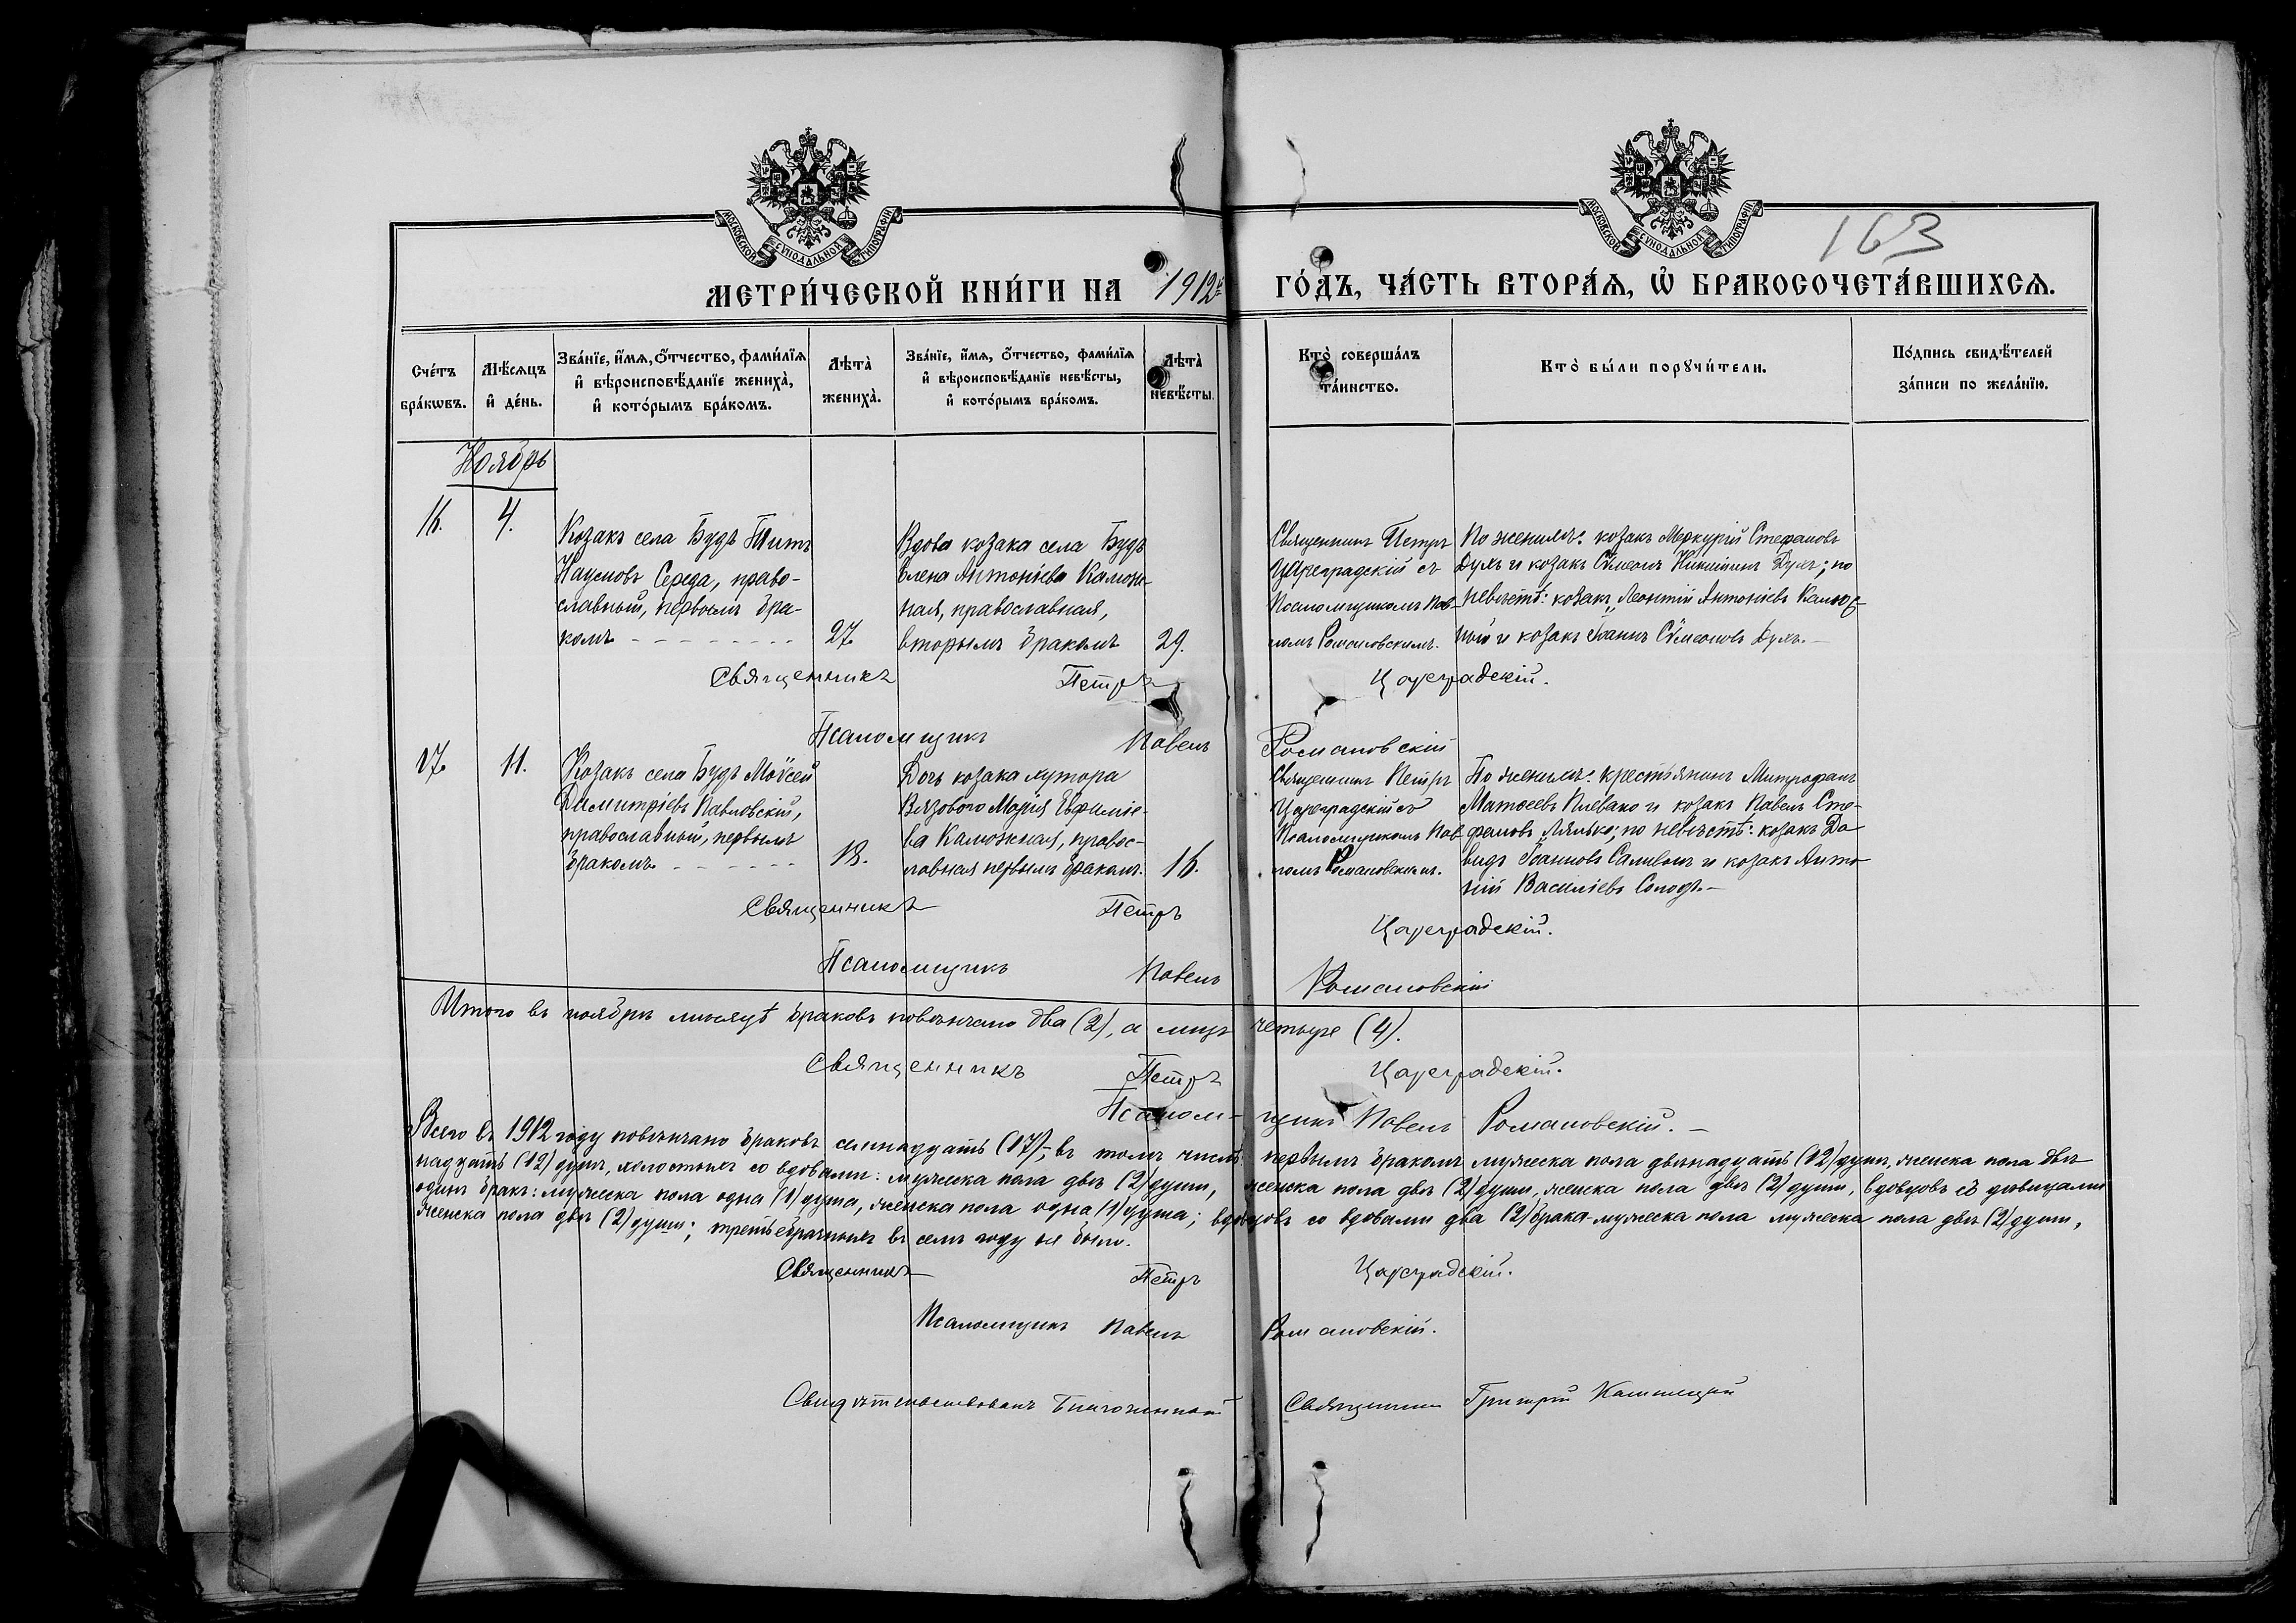 МОСКОВСКОЙ СѴНОДАЛЬНОЙ ТИПОГРАФІИ
МОСКОВСКОЙ СѴНОДАЛЬНОЙ ТИПОГРАФІИ
163
МЕТРИ́ЧЕСКОЙ КНИ́ГИ НА 1912й ГО́ДЪ, ЧА́СТЬ ВТОРА́Ѧ, Ѡ҆ БРАКОСОЧЕТА́ВШИХСѦ.
Сче́тъ бра́кѡвъ.
Мѣ́сѧцъ и҆ де́нь.
Зва́нїе, и҆́мѧ, о҆́тчество, фами́лїѧ
и҆ вѣроисповѣ́данїе жениха̀,
и҆ кото́рымъ бра́комъ.
Лѣта̀ жениха̀.
Зва́нїе, и҆́мѧ, о҆́тчество, фами́лїѧ
и҆ вѣроисповѣ́данїе невѣ́сты,
и҆ кото́рымъ бра́комъ.
Лѣта̀ невѣ́сты.
Кто̀ соверша́лъ
та́инство.
Кто̀ бы́ли порꙋчи́тели.
По́дпись свидѣ́телей
за́писи по жела́нїю.
Ноябрь
16.
4.
Козакъ села Будъ Титъ
Наумовъ Середа, право-
славный, первымъ бра-
комъ
27.
Вдова козака села Будъ
Елена Антоніева Калюж-
ная, православная,
вторымъ бракомъ
29.
Священникъ Петръ
Цареградскій съ
Псаломщикомъ Пав-
ломъ Романовскимъ.
По женихѣ: козакъ Меркурій Стефановъ
Духъ и козакъ Сѵмеонъ Никитинъ Духъ; по
невѣстѣ: козакъ Леонтій Антоніевъ Калюж-
ный и козакъ Іоаннъ Сѵмеоновъ Духъ.
Священникъ Петръ Цареградскій.
Псаломщикъ Павелъ Романовскій
17.
11.
Козакъ села Будъ Моѵсей
Димитріевъ Павловскій,
православный, первымъ
бракомъ
18.
Дочь козака хутора
Вязового Марія Евфиміе-
ва Калюжная, правос-
лавная первымъ бракомъ.
16.
Священникъ Петръ
Цареградскій съ
Псаломщикомъ Пав-
ломъ Романовскимъ.
По женихѣ: крестьянинъ Митрофанъ
Матѳеевъ Плевако и козакъ Павелъ Сте-
фановъ Лялько; по невѣстѣ: козакъ Да-
видъ Іоанновъ Саливонъ и козакъ Анто-
ній Василіевъ Солодъ.
Священникъ Петръ Цареградскій.
Псаломщикъ Павелъ Романовскій
Итого въ ноябрѣ мѣсяцѣ браковъ повѣнчано два (2), а лицъ четыре (4).
Священникъ Петръ Цареградскій.
Псалом-щикъ Павелъ Романовскій.
Всего въ 1912 году повѣнчано браковъ семнадцать (17), въ томъ числѣ: первымъ бракомъ мужеска пола двѣнадцать (12) душъ, женска пола двѣ-
надцать (12) душъ, холостыхъ со вдовами: мужеска пола двѣ (2) души, женска пола двѣ (2) души, женска пола двѣ (2) души, вдовцовъ съ дѣвицами
одинъ бракъ: мужеска пола одна (1) душа, женска пола одна (1) душа; вдовцовъ со вдовами два (2) брака мужеска пола мужеска пола двѣ (2) души,
женска пола двѣ (2) души; третьебрачныхъ въ семъ году не было.
Священникъ Петръ Цареградскій.
Псаломщикъ Павелъ Романовскій.
Свидѣтельствовалъ Благочинный Священникъ Григорій